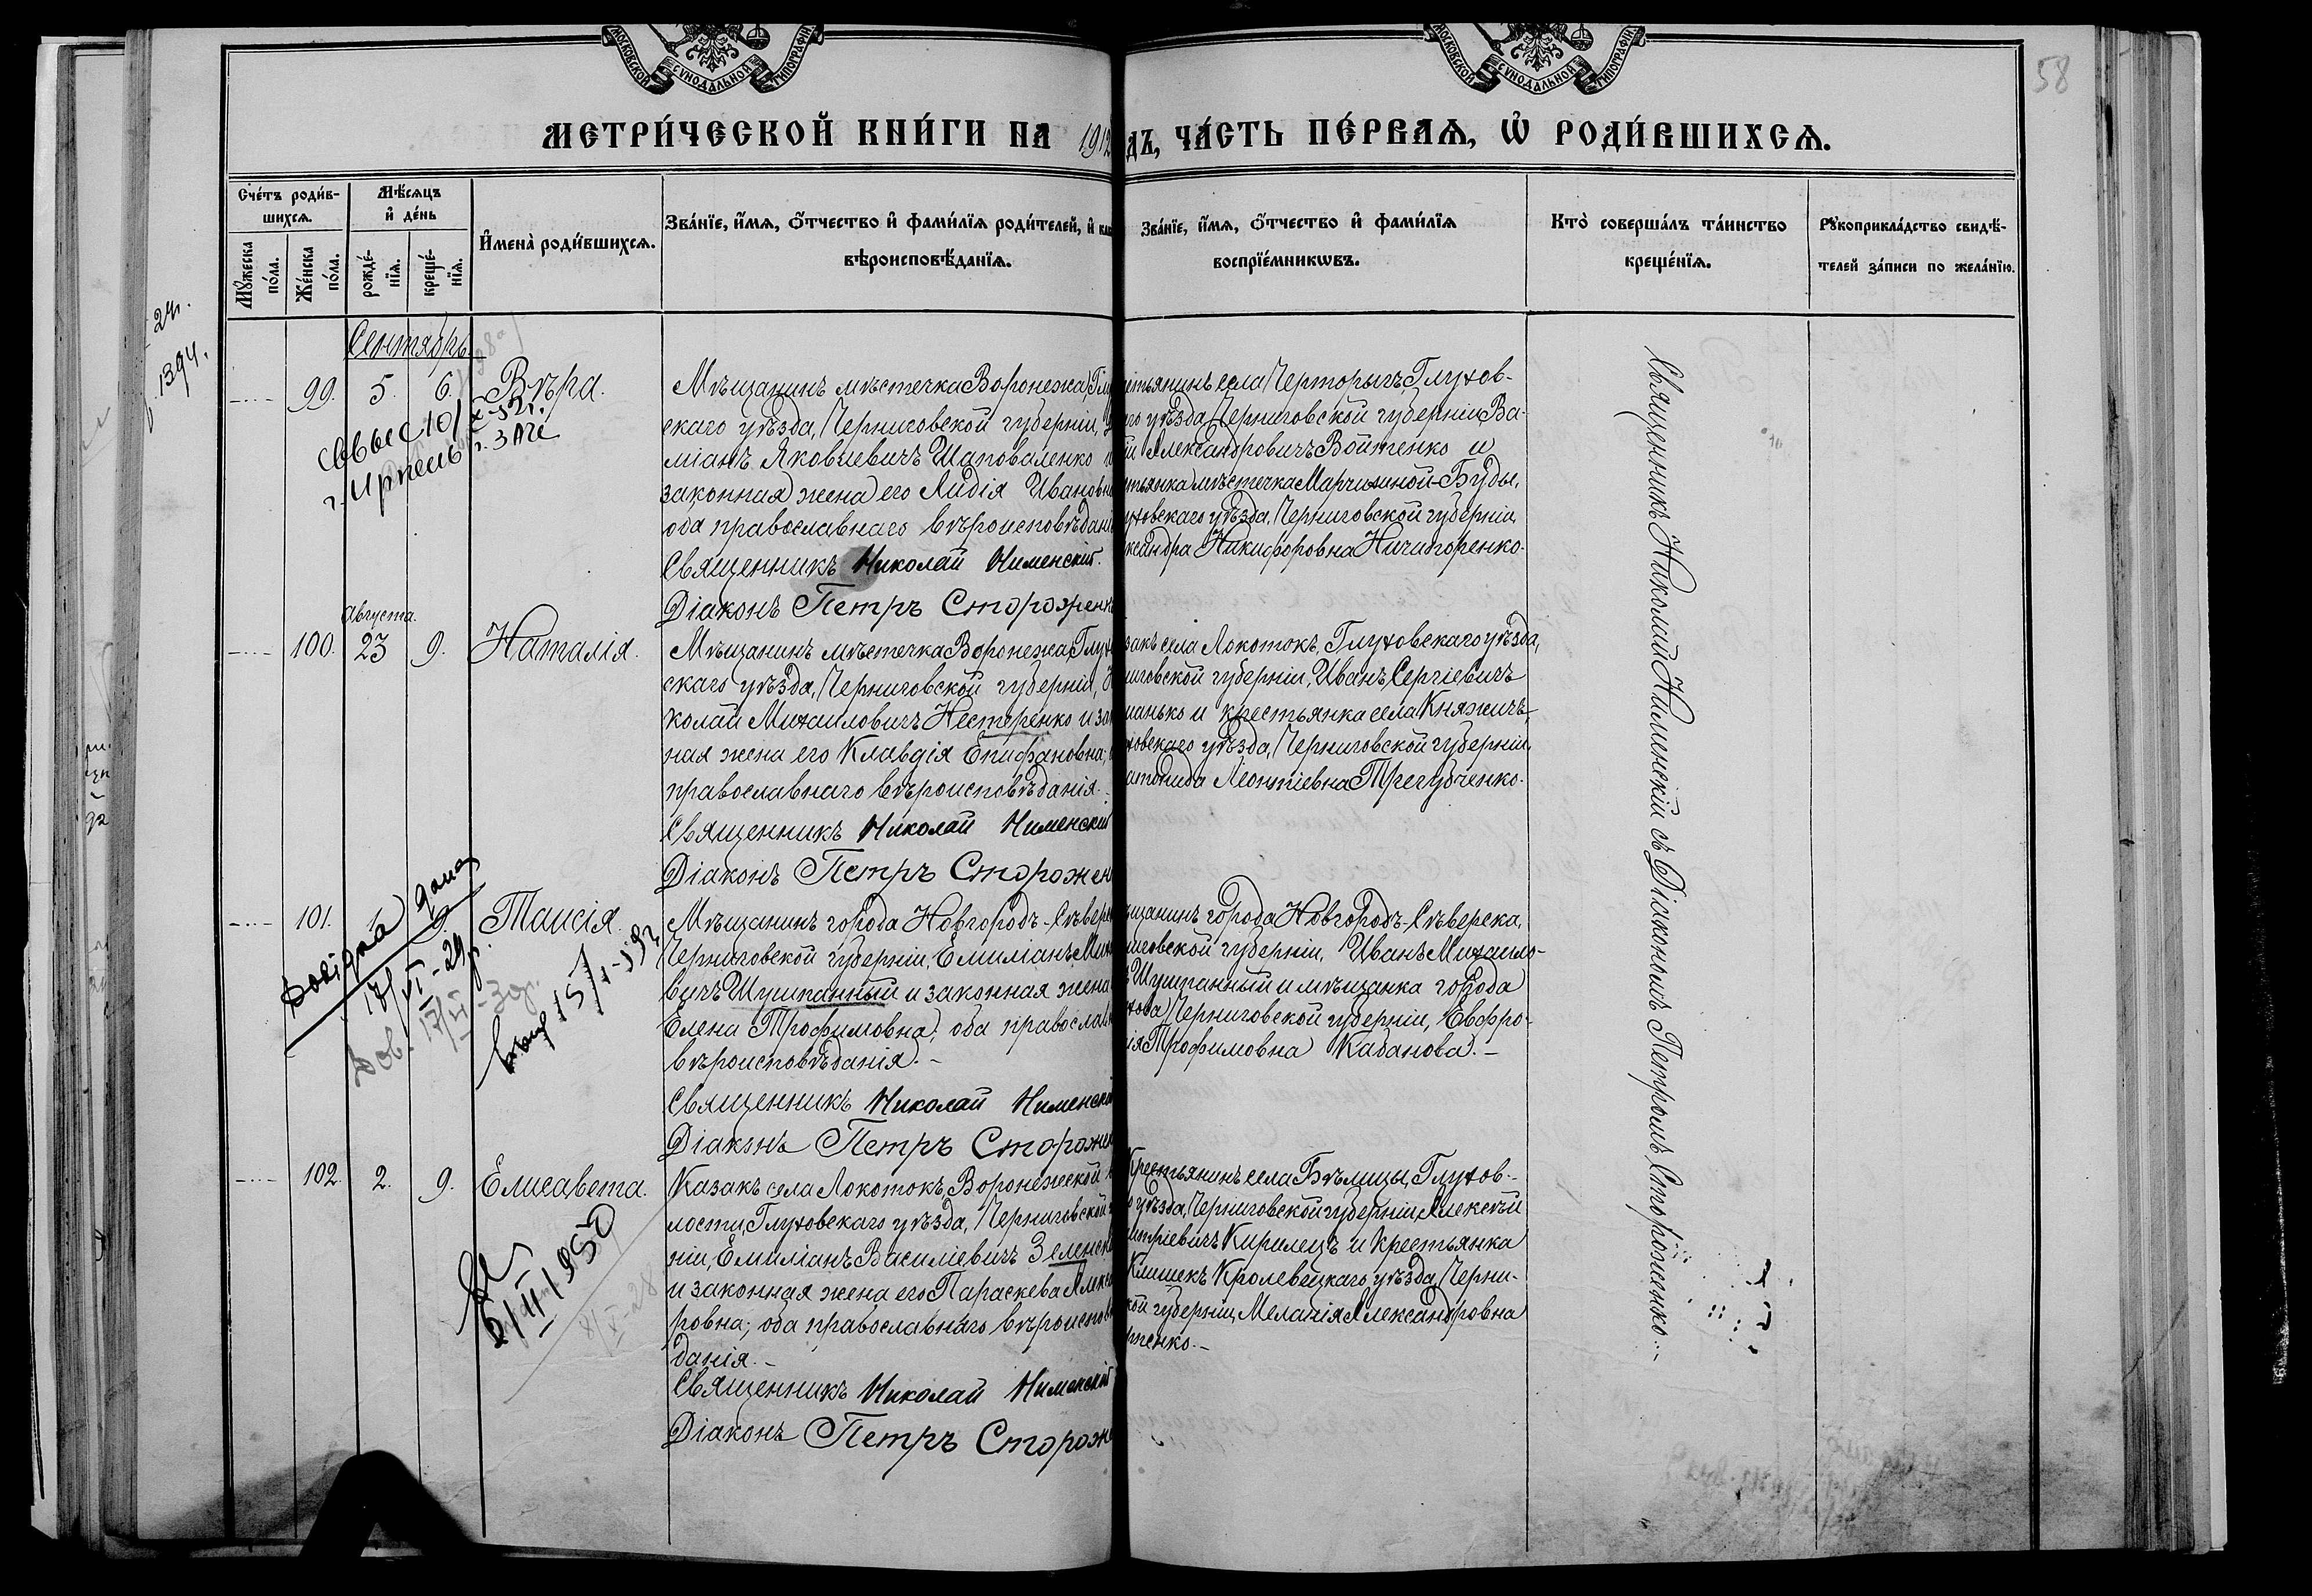 МОСКОВСКОЙ СѴНОДАЛЬНОЙ ТИПОГРАФІИ
МОСКОВСКОЙ СѴНОДАЛЬНОЙ ТИПОГРАФІИ
58
МЕТРИ́ЧЕСКОЙ КНИ́ГИ НА 1912
ДЪ, ЧА́СТЬ ПЕ́РВАѦ, Ѡ҆ РОДИ́ВШИХСѦ.
Сче́тъ роди́в-
шихсѧ.
Мꙋ́жеска по́ла.
Же́нска по́ла.
Мѣ́сѧцъ
и҆ де́нь
рожде́-
нїѧ.
креще́-
нїѧ.
И҆мена̀ роди́вшихсѧ.
Зва́нїе, и҆́мѧ, ѻ҆́тчество и҆ фами́лїѧ роди́телей, и҆
вѣроисповѣ́данїѧ.
Зва́нїе, и҆́мѧ, ѻ҆́тчество и҆ фами́лїѧ
воспрїе́мникѡвъ.
Кто̀ соверша́лъ та́инство
креще́нїѧ.
Рꙋкоприкла́дство свидѣ́-
телей за́писи по жела́нїю.
24г.
1394.
Сентябрь
99. 5. 6. Вѣра.
г. Ирпень
Мѣщанинъ мѣстечка Воронежа, Глу
скаго уѣзда, Черниговской губерніи,
міанъ Яковлевичъ Шаповаленко и
законная жена его Лидія Ивановна
оба православнаго вѣроисповѣдані
Священникъ Николай Нименскій.
Діаконъ Петръ Стороженк
стьянинъ села Черторыгъ, Глухов-
го уѣзда, Черниговской губерніи, Ва-
ій Александровичъ Войтенко и
тьянка мѣстечка Марчихиной-Буды,
уховскаго уѣзда, Черниговской губерніи,
ксандра Никифоровна Ничипоренко.
Августа.
100. 23 9. Наталія.
Мѣщанинъ мѣстечка Воронежа, Глухо
скаго уѣзда, Черниговской губерніи, Н
колай Михаиловичъ Нестеренко и зак
ная жена его Клавдія Епифановна;
православнаго вѣроисповѣданія.
Священникъ Николай Нименскій
Діаконъ Петръ Сторожен
закъ села Локотокъ, Глуховскаго уѣзда,
ниговской губерніи, Иванъ Сергіевичъ
манько и крестьянка села Княжичъ,
ховскаго уѣзда, Черниговской губерніи,
Леонтіевна Трегубченко.
101. 1 9. Таисія.
17/VI-29 р.
Дов. 17/VI-30р.
Мѣщанинъ города Новгородъ-Сѣверс
Черниговской губерніи, Емиліанъ Миха
вичъ Шушпанный и законная жена
Елена Трофимовна, оба православн
вѣроисповѣданія.-
Священникъ Николай Нименскій
Діаконъ Петръ Сторожен
щанинъ города Новгородъ-Сѣверска,
ниговской губерніи, Иванъ Михаило-
Шушпанный и мѣщанка города
хова, Черниговской губерніи, Евфро-
ія Трофимовна Кабанова.-
102. 2. 9. Елисавета.
6/II/1950
8/X-28
Казакъ села Локотокъ, Воронежской
лости, Глуховскаго уѣзда, Черниговской
ніи, Емиліанъ Василіевичъ Зеленск
и законная жена его Параскева Алекс
ровна; оба православнаго вѣроиспов
данія.-
Священникъ Николай Нименскій
Діаконъ Петръ Сторож
Крестьянинъ села Бѣлицы, Глухов-
уѣзда, Черниговской губерніи Алексѣй
митріевичъ Кирилецъ и крестьянка
Клишекъ Кролевецкаго уѣзда, Черни-
кой губерніи, Меланія Александровна
ртенко.-
Священникъ Николай Нименскій съ Діакономъ Петромъ Стороженко.